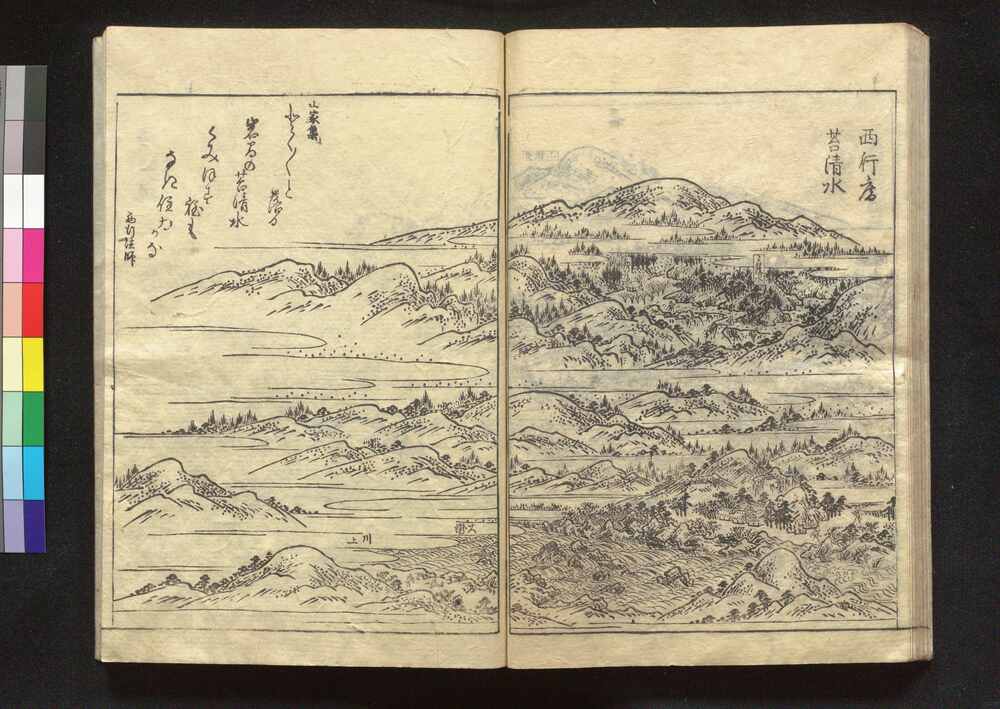 西行庵
苔清水
山家集
とく〳〵と落る
岩間の苔清水
くみほす程も
なき住居かな
西行法師
川上